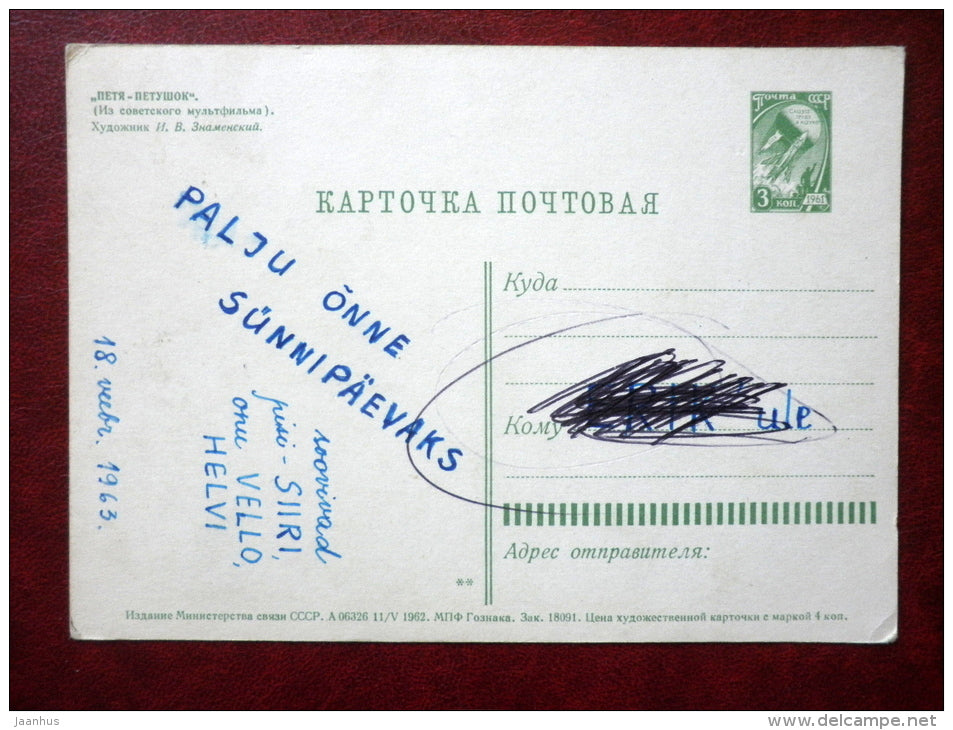 „ПЕТЯ-ПЕТУШОК".
(Из советского мультфильма).
Художник И. В. Знаменский.
Почта СССР
3 коп
1961
КАРТОЧКА ПОЧТОВАЯ
PALJU ÕNNE
SÜNNIPÄEVAKS
soovivad
pisi-SIIRI,
onu VELLO,
HELVI
18. veebr. 1963.
Куда
Кому
ule
Адрес отправителя:
**
Издание Министерства связи СССР. А 06326 11/V 1962. МПФ Гознака. Зак. 18091. Цена художественной карточки с маркой 4 коп.
Jaanhus
www.delcampe.net